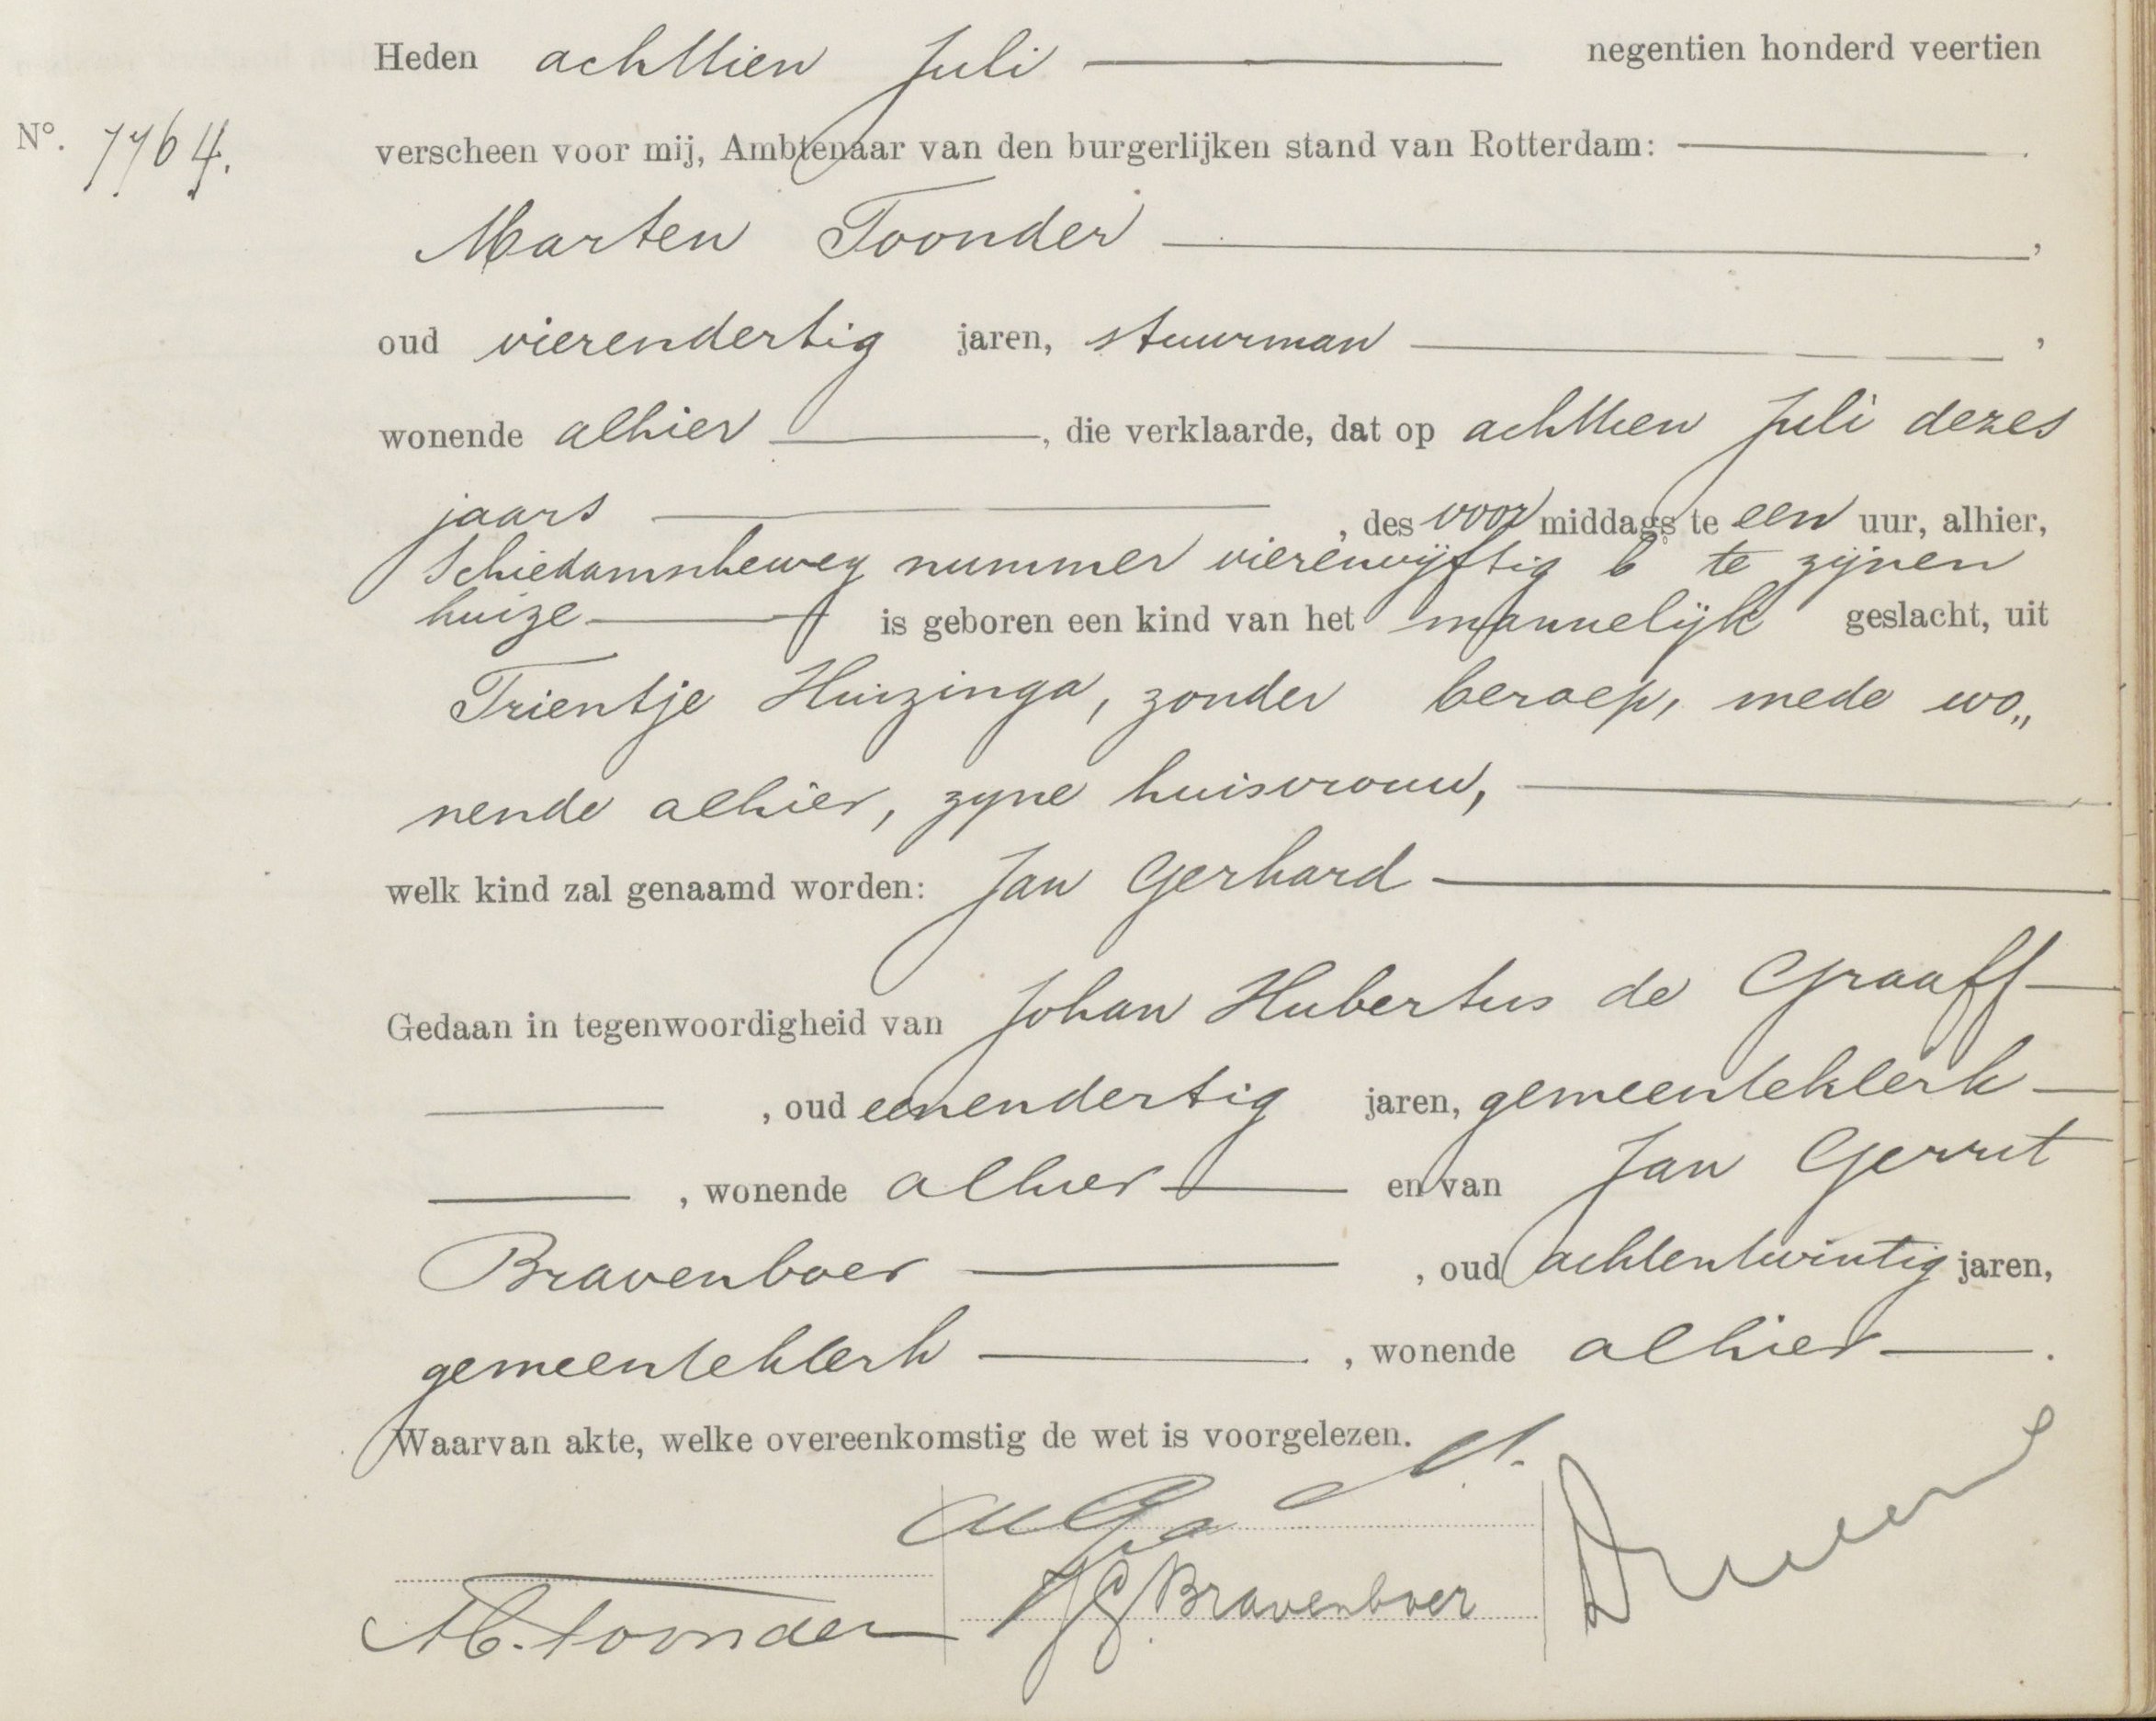 Heden achttien Juli negentien honderd veertien
N°. 7764.
verscheen voor mij, Ambtenaar van den burgerlijken stand van Rotterdam:
Marten Toonder,
oud vierendertig jaren, stuurman,
wonende alhier, die verklaarde, dat op achttien Juli dezes
jaars, des voormiddags te een uur, alhier,
Schiedamscheweg nummer vierenvijftig b te zijnen
huize is geboren een kind van het mannelijk geslacht, uit
Trientje Huizinga, zonder beroep, mede wo„
nende alhier, zyne huisvrouw,
welk kind zal genaamd worden: Jan Gerhard
Gedaan in tegenwoordigheid van Johan Hubertus de Graaff
, oud eenendertig jaren, gemeenteklerk
, wonende alhier en van Jan Gerrit
Bravenboer, oud achtentwintig jaren,
gemeenteklerk, wonende alhier.
Waarvan akte, welke overeenkomstig de wet is voorgelezen.
M. Toonder
JG Bravenboer